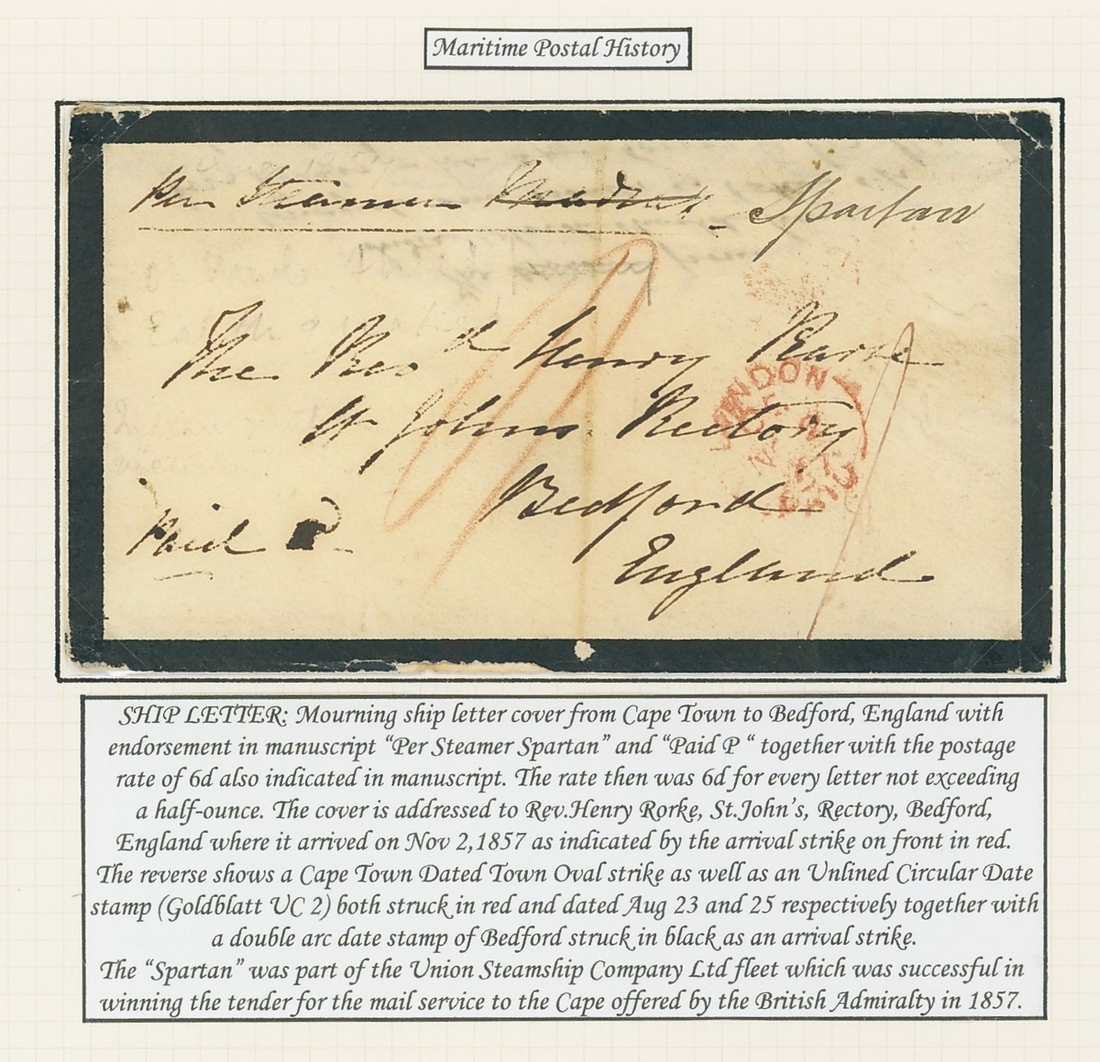 Maritime Postal History
Per Steamer Spartan
The Revd Henry
St Johns. Rectory
Bedford
Paid P
England
LONDON
PAID
SHIP LETTER: Mourning ship letter cover from Cape Town to Bedford, England with
endorsement in manuscript “Per Steamer Spartan” and “Paid P “ together with the postage
rate of 6d also indicated in manuscript. The rate then was 6d for every letter not exceeding
a half-ounce. The cover is addressed to Rev.Henry Rorke, St.John's, Rectory, Bedford,
England where it arrived on Nov 2,1857 as indicated by the arrival strike on front in red.
The reverse shows a Cape Town Dated Town Oval strike as well as an Unlined Circular Date
stamp (Goldblatt UC 2) both struck in red and dated Aug 23 and 25 respectively together with
a double arc date stamp of Bedford struck in black as an arrival strike.
The “Spartan” was part of the Union Steamship Company Ltd fleet which was successful in
winning the tender for the mail service to the Cape offered by the British Admiralty in 1857.